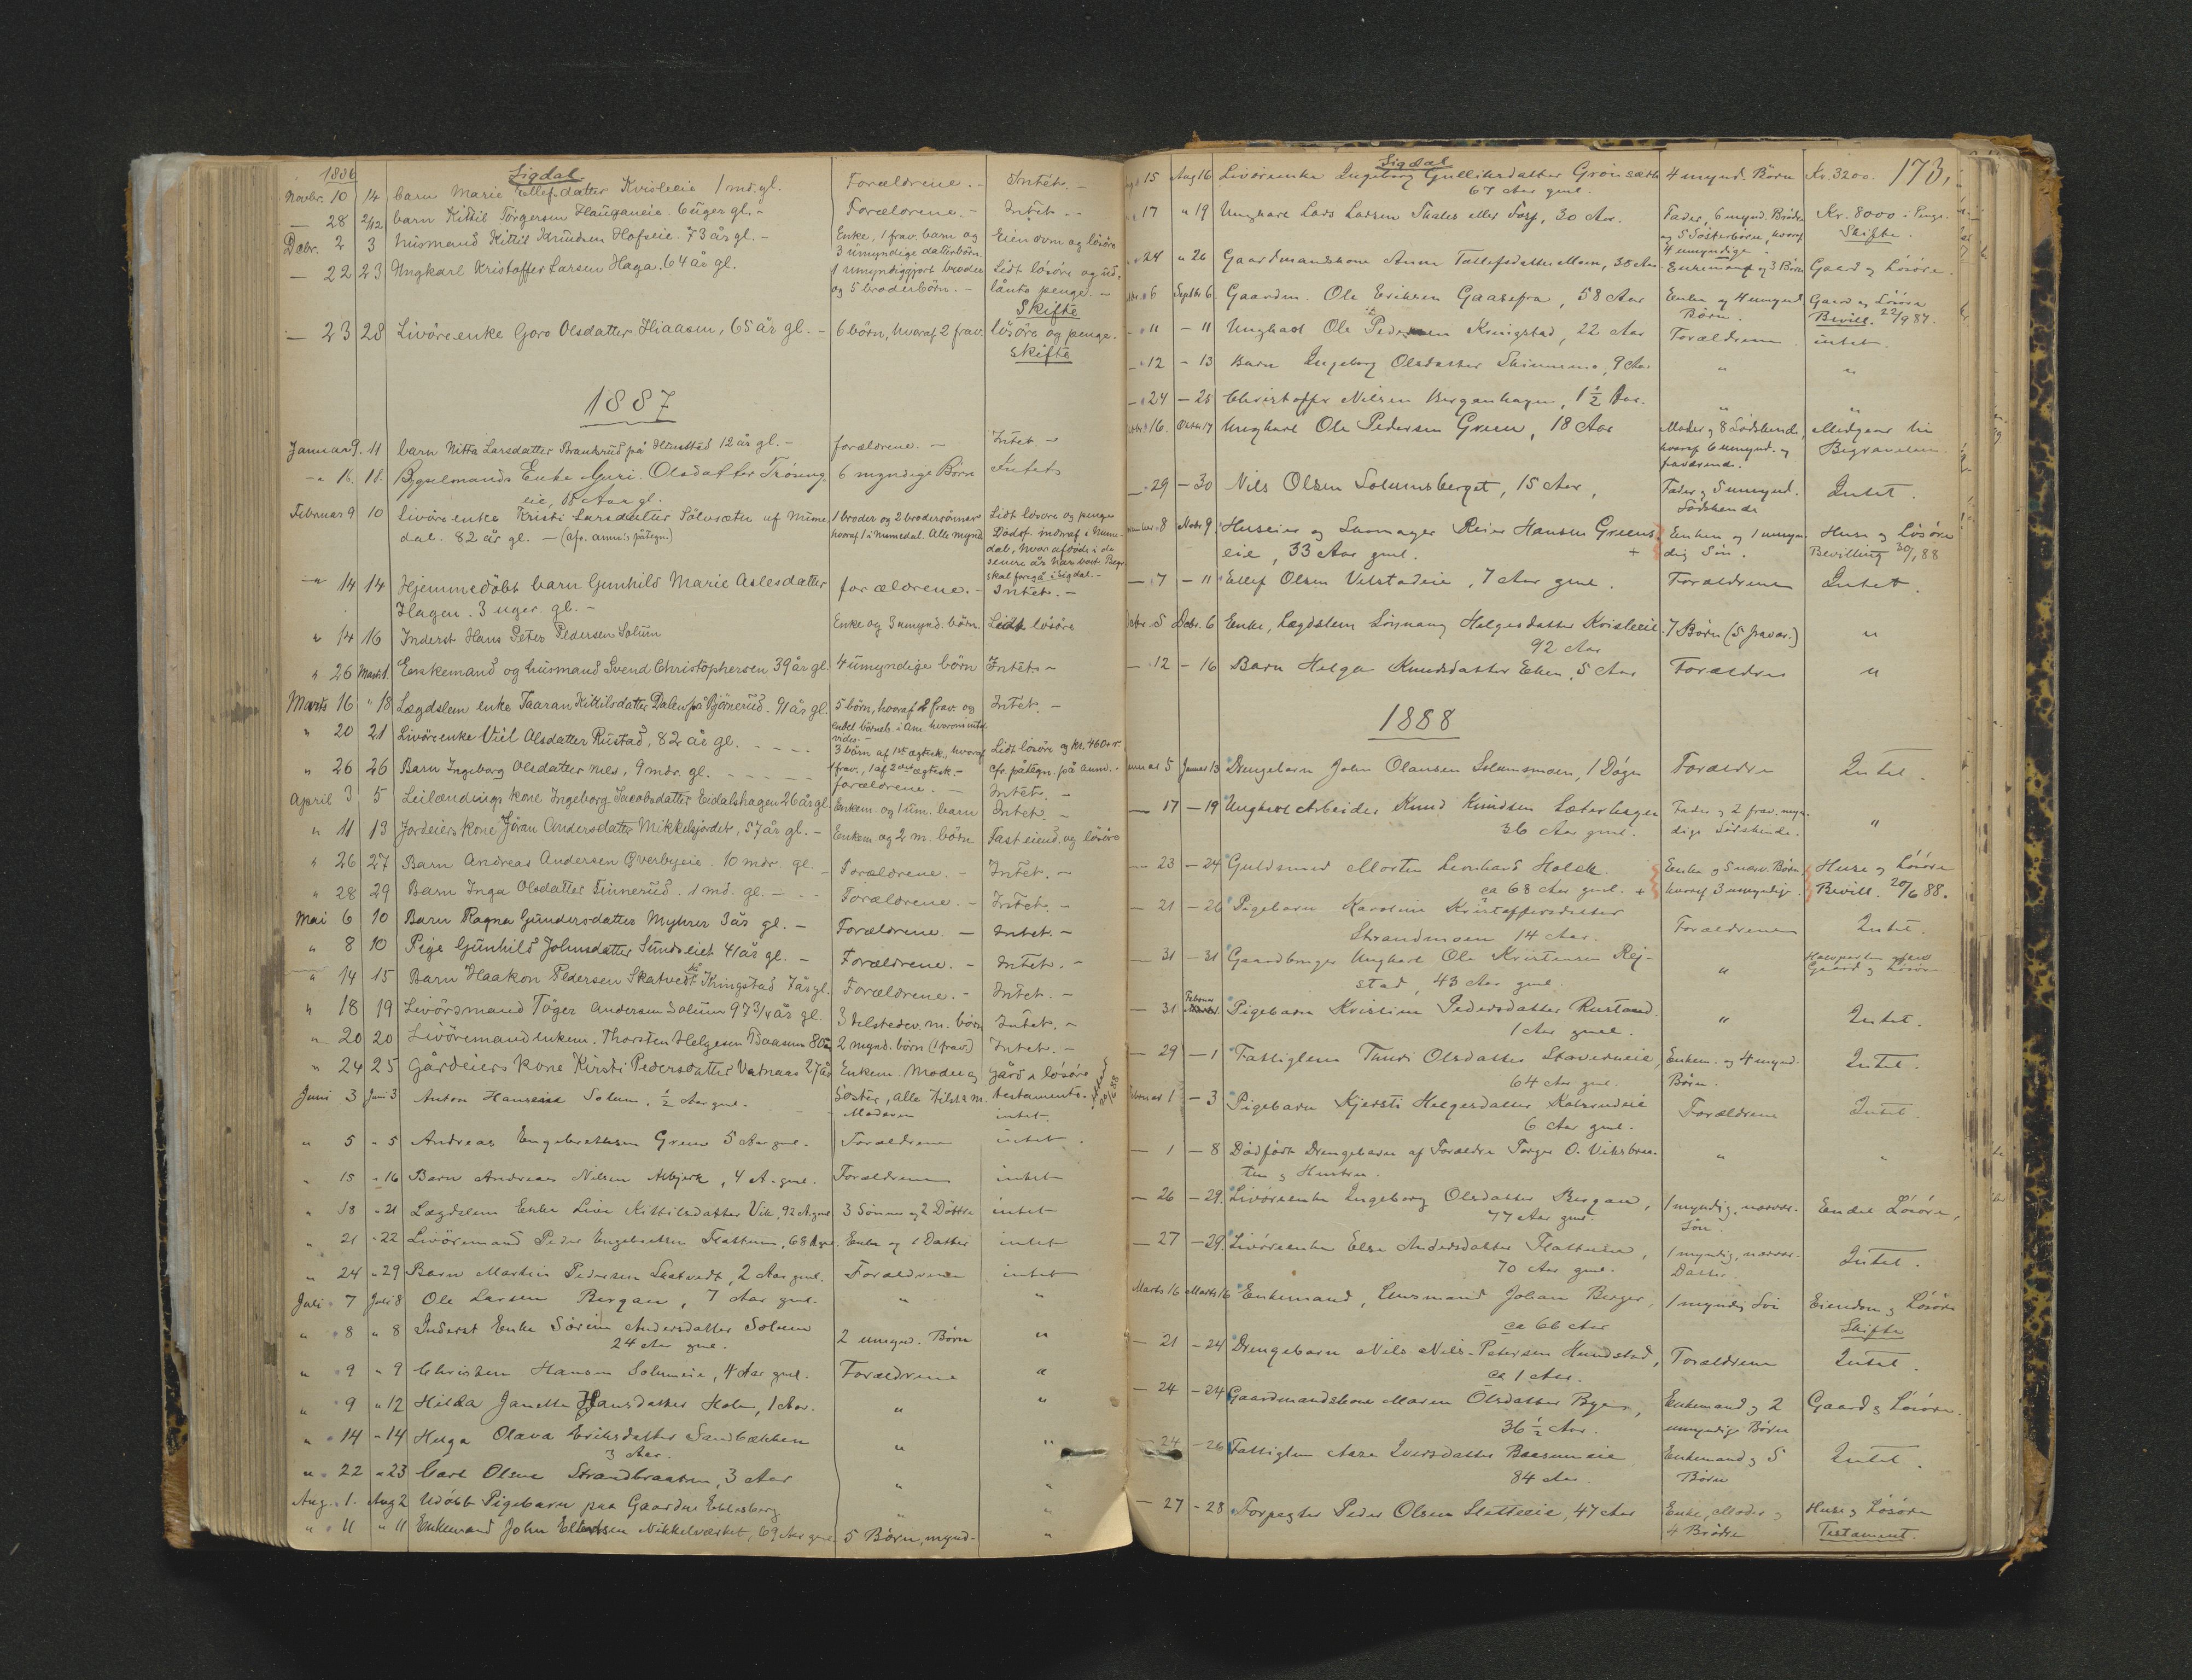 1886 Sigdal
Novbr. 10 14 barn Marie Ellefsdatter Kvisleeie 1 md. gl. Forældrene. - Intet. -
— 28 2/12 barn Kittil Torgersen Haugeneie. 6 uger gl. - Forældrene. - Intet. -
Debr. 2 3 husmand Kittil Knudsen Hofseie. 73 år gl. - Enke, 1 frav. barn og Eiendom og løsøre
3 umyndige datterbørn.
— 22 23 Ungkarl Kristoffer Larsen Haga. 64 år gl. 1 umyndiggjort broder Lidt løsøre og ud-
og 5 broderbørn. - lånte penge. -
Skifte
— 23 28 Livøreenke Goro Olsdatter Hiaasen, 65 år gl. - 6 børn, hvoraf 2 frav. løsøre og penge.
Skifte
1887
Januar 9. 11 barn Nitta Larsdatter Brauterud på Hunstad 12 år gl. - forældrene. - Intet -
-" 16. 18. Bygselmands Enke Guri Olsdatter Frøseng 6 myndige Børn Intet
eie, 68 Aar gl.
Februar 9 10 Livøre enke Kristi Larsdatter Sølvsæter af Nume- 1 broder og 2 brodersønner Lidt løsøre og penge
dal. 82 år gl. - (cfr. anm:s påtegn.) hvoraf 1 i Numedal. Alle mynd. Dødsf. indraf i Nume-
dal, hvor afdøde i de
senere år har boet. Begr.
skal foregå i Sigdal. -
-" 14 14 Hjemmedøbt barn Gunhild Marie Aslesdatter forældrene. - Intet. -
Hagen. 3 uger gl. -
" 14 16 Inderst Hans Peter Pedersen Solum Enke og 3 umynd. børn. Lidt løsøre
" 26 Marts 1. Enkemand og husmand Svend Christophersen 39 år gl. 4 umyndige børn Intet -
Marts 16 " 18 Lægdslem enke Taaran Kittilsdatter Dalen på Bjørnerud. 91 år gl. 5 børn, hvoraf 2 frav. og Intet. -
endel børneb. i Am. hvorom intet
vides. -
" 20 21 Livøreenke Viel Olsdatter Rustad, 82 år gl. - - - - 3 børn af 1ste ægtesk., hvoraf Lidt løsøre og kr. 460
1 frav., 1 af 2det ægtesk. - cfr. påtegn. på anm. -
" 26 26 Barn Ingeborg Olsdatter Moen, 9 mdr. gl. - - - - - forældrene. - Intet. -
April 3 5 Leilændings kone Ingeborg Jacobsdatter Eidalshagen 26 år gl. Enkem. og 1 um. barn Intet. -
" 11 13 Jordeiers kone Jøran Andersdatter Mikkelsjordet, 57 år gl. - Enkem. og 2 m. børn Fast eiend. og løsøre
" 26 27 Barn Andreas Andersen Overbyeie. 10 mdr. gl. - Forældrene. - Intet. -
" 28 29 Barn Inga Olsdatter Finnerud. 1 md. gl. - - - Forældrene. - Intet. -
Mai 6 10 Barn Ragna Gundersdatter Myhrer 3 år gl. - Forældrene - Intet. -
" 8 10 Pige Gunhild Johnsdatter Sundseiet 41 år gl. - Forældrene. - Intet. -
" 14 15 Barn Haakon Pedersen Skatvedt på Kringstad 7 år gl. Forældrene. - Intet. -
" 18 19 Livøresmand Tøger Andersen Solum 97 3/4 år gl. 3 tilstedev. m. børn Intet. -
" 20 20 Livøremand enkem. Thorsten Helgesen Baasum 80 år 2 mynd. børn (1 frav.) Intet. -
" 24 25 Gårdeiers kone Kirsti Pedersdatter Vatnaas 27 år Enkem. Moder og gård & løsøre
Søster, alle tilst. m. testamente.
Juni 3 Juni 3 Anton Hansen Solum, 1/2 Aar gml. Moderen intet.
" 5 " 5 Andreas Engebrethsen Green 5 Aar gml. Forældrene intet.
" 15 " 16 Barn Andreas Nilsen Asbjerk, 4 A. gml. Forældrene intet
" 18 " 21 Lægdslem Enke Live Kittilsdatter Vik, 92 A. gml. 3 Sønner og 2 Døttre intet
" 21 " 22 Livøremand Peder Engebretsen Flattum, 68 A gml. Enke og 1 Datter intet
" 24 " 29 Barn Martin Pedersen Skatvedt, 2 Aar gml. Forældrene intet
Juli 7 Juli 8 Ole Larsen Bergan, 7 Aar gml. " "
" 8 " 8 Inderst Enke Sørine Andersdatter Solum 2 umynd. Børn "
24 Aar gml.
" 9 " 9 Christen Hansen Solumeie, 4 Aar gml. Forældrene "
" 9 " 12 Hilda Janette Hansdatter Holm, 1 Aar. " "
" 14 " 14 Helga Olava Eriksdatter Sandbækken " "
3 Aar.
" 22 " 23 Carl Olsen Strandbraaten, 3 Aar " "
Aug. 1. Aug 2 Udøbt Pigebarn paa Gaarden Eblesberg " "
" 11 " 11 Enkemand John Ellertsen Nikkelværket, 69 Aar gml. 5 Børn, mynd. "
Sigdal 173.
15 Aug 16 Livøreenke Ingeborg Gulliksdatter Grønsæth 4 mynd. Børn Kr. 3200.
67 Aar gml.
17 " 19 Ungkarl Lars Larsen Thales eller Fosf, 30 Aar. Fader, 6 mynd. Brødre Kr. 8000 i Penge.
og 5 Søsterbørn, hvoraf Skifte.
4 umyndige.
24 " 26 Gaardmandskone Anne Tollefsdatter Moen, 38 Aar Enkemand og 3 Børn Gaard og Løsøre.
6 Septbr 6. Gaardm. Ole Eriksen Gaasefra, 58 Aar Enke og 4 umynd. Gaard og Løsøre
Børn. Bevill. 22/9 87.
" 11 - 11 Ungkarl Ole Pedersen Kringstad, 22 Aar Forældrene. intet.
" 12 - 13 Barn Ingeborg Olsdatter Skinnæs, 9 Aar " "
- 24 - 25 Christoffer Nilsen Bergenhagen, 1 1/2 Aar. " "
16. Oktbr 17 Ungkarl Ole Pedersen Green, 18 Aar Moder og 8 Sødskende, Medgaar til
hvoraf 6 umynd. og Begravelsen.
fraværende.
- 29 - 30 Nils Olsen Solumsberget, 15 Aar, Fader og 5 umynd. Intet.
Sødskende
8 Novbr 9. Huseier og Skomager Reier Hansen Greens- Enken og 1 umyn- Huse og Løsøre
eie, 33 Aar gml. + dig Søn. Bevilling 30/1 88
- 7 - 11 Ellef Olsen Velstadeie, 7 Aar gml. Forældrene Intet.
Debr. 5 Debr. 6 Enke, Lægdslem Lisjnang Helgesdatter Kvisleeie. 7 Børn (5 fravær.) "
92 Aar
- 12 - 16 Barn Helga Knudsdatter Eken, 5 Aar Forældre "
1888
5 Januar 13 Drengebarn John Olausen Solumsmoen, 1 Døgn Forældre Intet.
- 17 - 19 Ungkarl Arbeider Knud Knudsen Sæterhagen Fader og 2 frav. myn- "
36 Aar gml. dige Sødskende.
- 23 - 24 Guldsmed Morten Leonhard Holck Enke og 5 nærv. Børn, Huse og Løsøre
ca 68 Aar gml. + hvoraf 3 umyndige. Bevill. 20/6 88.
- 21 - 26 Pigebarn Karoline Kristoffersdatter
Strandmoen 14 Aar. Forældrene Intet.
- 31 - 31 Gaardbruger Ungkarl Ole Kristensen Rej- " Halvparten af
stad, 43 Aar gml. Gaard og Løsøre
- 31 Februar Pigebarn Kristine Pedersdatter Rustand. " Intet.
1 Aar gml.
- 29 - 1 Fattiglem Thuri Olsdatter Staverneie Enkem. og 4 mynd. Intet.
64 Aar gml. Børn.
Februar 1 - 3 Pigebarn Kjersti Helgesdatter Kolsrudeie Forældrene Intet.
6 Aar gml.
- 1 - 8 Dødfødt Drengebarn af Forældre Torger O. Viksbraa- " "
ten og Hustru.
- 26 - 29. Livøreenke Ingeborg Olsdatter Bergan, 1 myndig, nærvær. Endel Løsøre,
77 Aar gml. Søn.
- 27 - 29. Livøreenke Else Andersdatter Flattum, 1 myndig, nærvær. Intet.
70 Aar gml. Datter.
Marts 16 Marts 16 Enkemand, Husmand Johan Berger, 1 myndig Søn Eiendom og Løsøre
ca 66 Aar Skifte
- 21 - 24 Drengebarn Nils Nils-Petersen Hundstad, Forældrene Intet.
ca 1 Aar.
- 24 - 24 Gaardmandskone Maren Olsdatter Byer, Enkemand og 2 Gaard og Løsøre.
36 1/2 Aar. umyndige Børn
- 24 - 26 Fattiglem Aase Iversdatter Baasumeie Enkemand og 5 Intet.
84 Aar. Børn
- 27 - 28 Forpagter Peder Olsen Sletteeie, 47 Aar Enke, Moder og Huse og Løsøre
4 Brødre Testament.